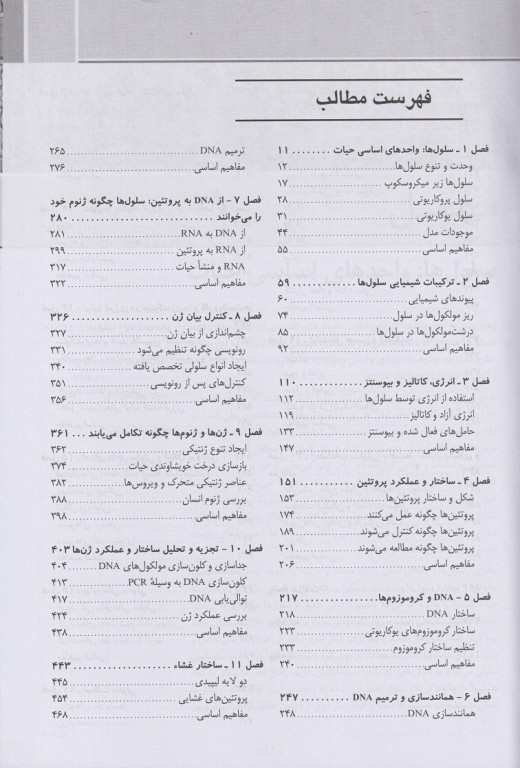 فهرست مطالب
فصل ۱ ـ سلول‌ها: واحدهای اساسی حیات ........ ۱۱
وحدت و تنوع سلول‌ها ........ ۱۲
سلول‌ها زیر میکروسکوپ ........ ۱۷
سلول پروکاریوتی ........ ۲۸
سلول یوکاریوتی ........ ۳۱
موجودات مدل ........ ۴۴
مفاهیم اساسی ........ ۵۵
فصل ۲ ـ ترکیبات شیمیایی سلول‌ها ........ ۵۹
پیوندهای شیمیایی ........ ۶۰
ریز مولکول‌ها در سلول ........ ۷۴
درشت‌مولکول‌ها در سلول‌ها ........ ۸۵
مفاهیم اساسی ........ ۹۲
فصل ۳ ـ انرژی، کاتالیز و بیوسنتز ........ ۱۱۰
استفاده از انرژی توسط سلول‌ها ........ ۱۱۲
انرژی آزاد و کاتالیز ........ ۱۱۹
حامل‌های فعال شده و بیوسنتز ........ ۱۳۳
مفاهیم اساسی ........ ۱۴۷
فصل ۴ ـ ساختار و عملکرد پروتئین ........ ۱۵۱
شکل و ساختار پروتئین‌ها ........ ۱۵۳
پروتئین‌ها چگونه عمل می‌کنند ........ ۱۷۴
پروتئین‌ها چگونه کنترل می‌شوند ........ ۱۸۹
پروتئین‌ها چگونه مطالعه می‌شوند ........ ۲۰۱
مفاهیم اساسی ........ ۲۰۶
فصل ۵ - DNA و کروموزوم‌ها ........ ۲۱۷
ساختار DNA ........ ۲۱۸
ساختار کروموزوم‌های یوکاریوتی ........ ۲۲۳
تنظیم ساختار کروموزوم ........ ۲۳۳
مفاهیم اساسی ........ ۲۴۰
فصل ۶ - همانندسازی و ترمیم DNA ........ ۲۴۷
همانندسازی DNA ........ ۲۴۸
ترمیم DNA ........ ۲۶۵
مفاهیم اساسی ........ ۲۷۶
فصل ۷ - از DNA به پروتئین: سلول‌ها چگونه ژنوم خود
را می‌خوانند ........ ۲۸۰
از DNA به RNA ........ ۲۸۱
از RNA به پروتئین ........ ۲۹۹
RNA و منشأ حیات ........ ۳۱۷
مفاهیم اساسی ........ ۳۲۲
فصل ۸ ـ کنترل بیان ژن ........ ۳۲۶
چشم‌اندازی از بیان ژن ........ ۳۲۷
رونویسی چگونه تنظیم می‌شود ........ ۳۳۱
ایجاد انواع سلولی تخصص یافته ........ ۳۴۰
کنترل‌های پس از رونویسی ........ ۳۵۱
مفاهیم اساسی ........ ۳۵۶
فصل ۹ ـ ژن‌ها و ژنوم‌ها چگونه تکامل می‌یابند ... ۳۶۱
ایجاد تنوع ژنتیکی ........ ۳۶۲
بازسازی درخت خویشاوندی حیات ........ ۳۷۴
عناصر ژنتیکی متحرک و ویروس‌ها ........ ۳۸۲
بررسی ژنوم انسان ........ ۳۸۸
مفاهیم اساسی ........ ۳۹۸
فصل ۱۰ - تجزیه و تحلیل ساختار و عملکرد ژن‌ها ۴۰۳
جداسازی و کلون‌سازی مولکول‌های DNA ........ ۴۰۴
کلون‌سازی DNA به وسیلهٔ PCR ........ ۴۱۳
توالی‌یابی DNA ........ ۴۱۷
بررسی عملکرد ژن ........ ۴۲۴
مفاهیم اساسی ........ ۴۳۸
فصل ۱۱ ـ ساختار غشاء ........ ۴۴۳
دو لایه لیپیدی ........ ۴۴۵
پروتئین‌های غشایی ........ ۴۵۴
مفاهیم اساسی ........ ۴۶۸